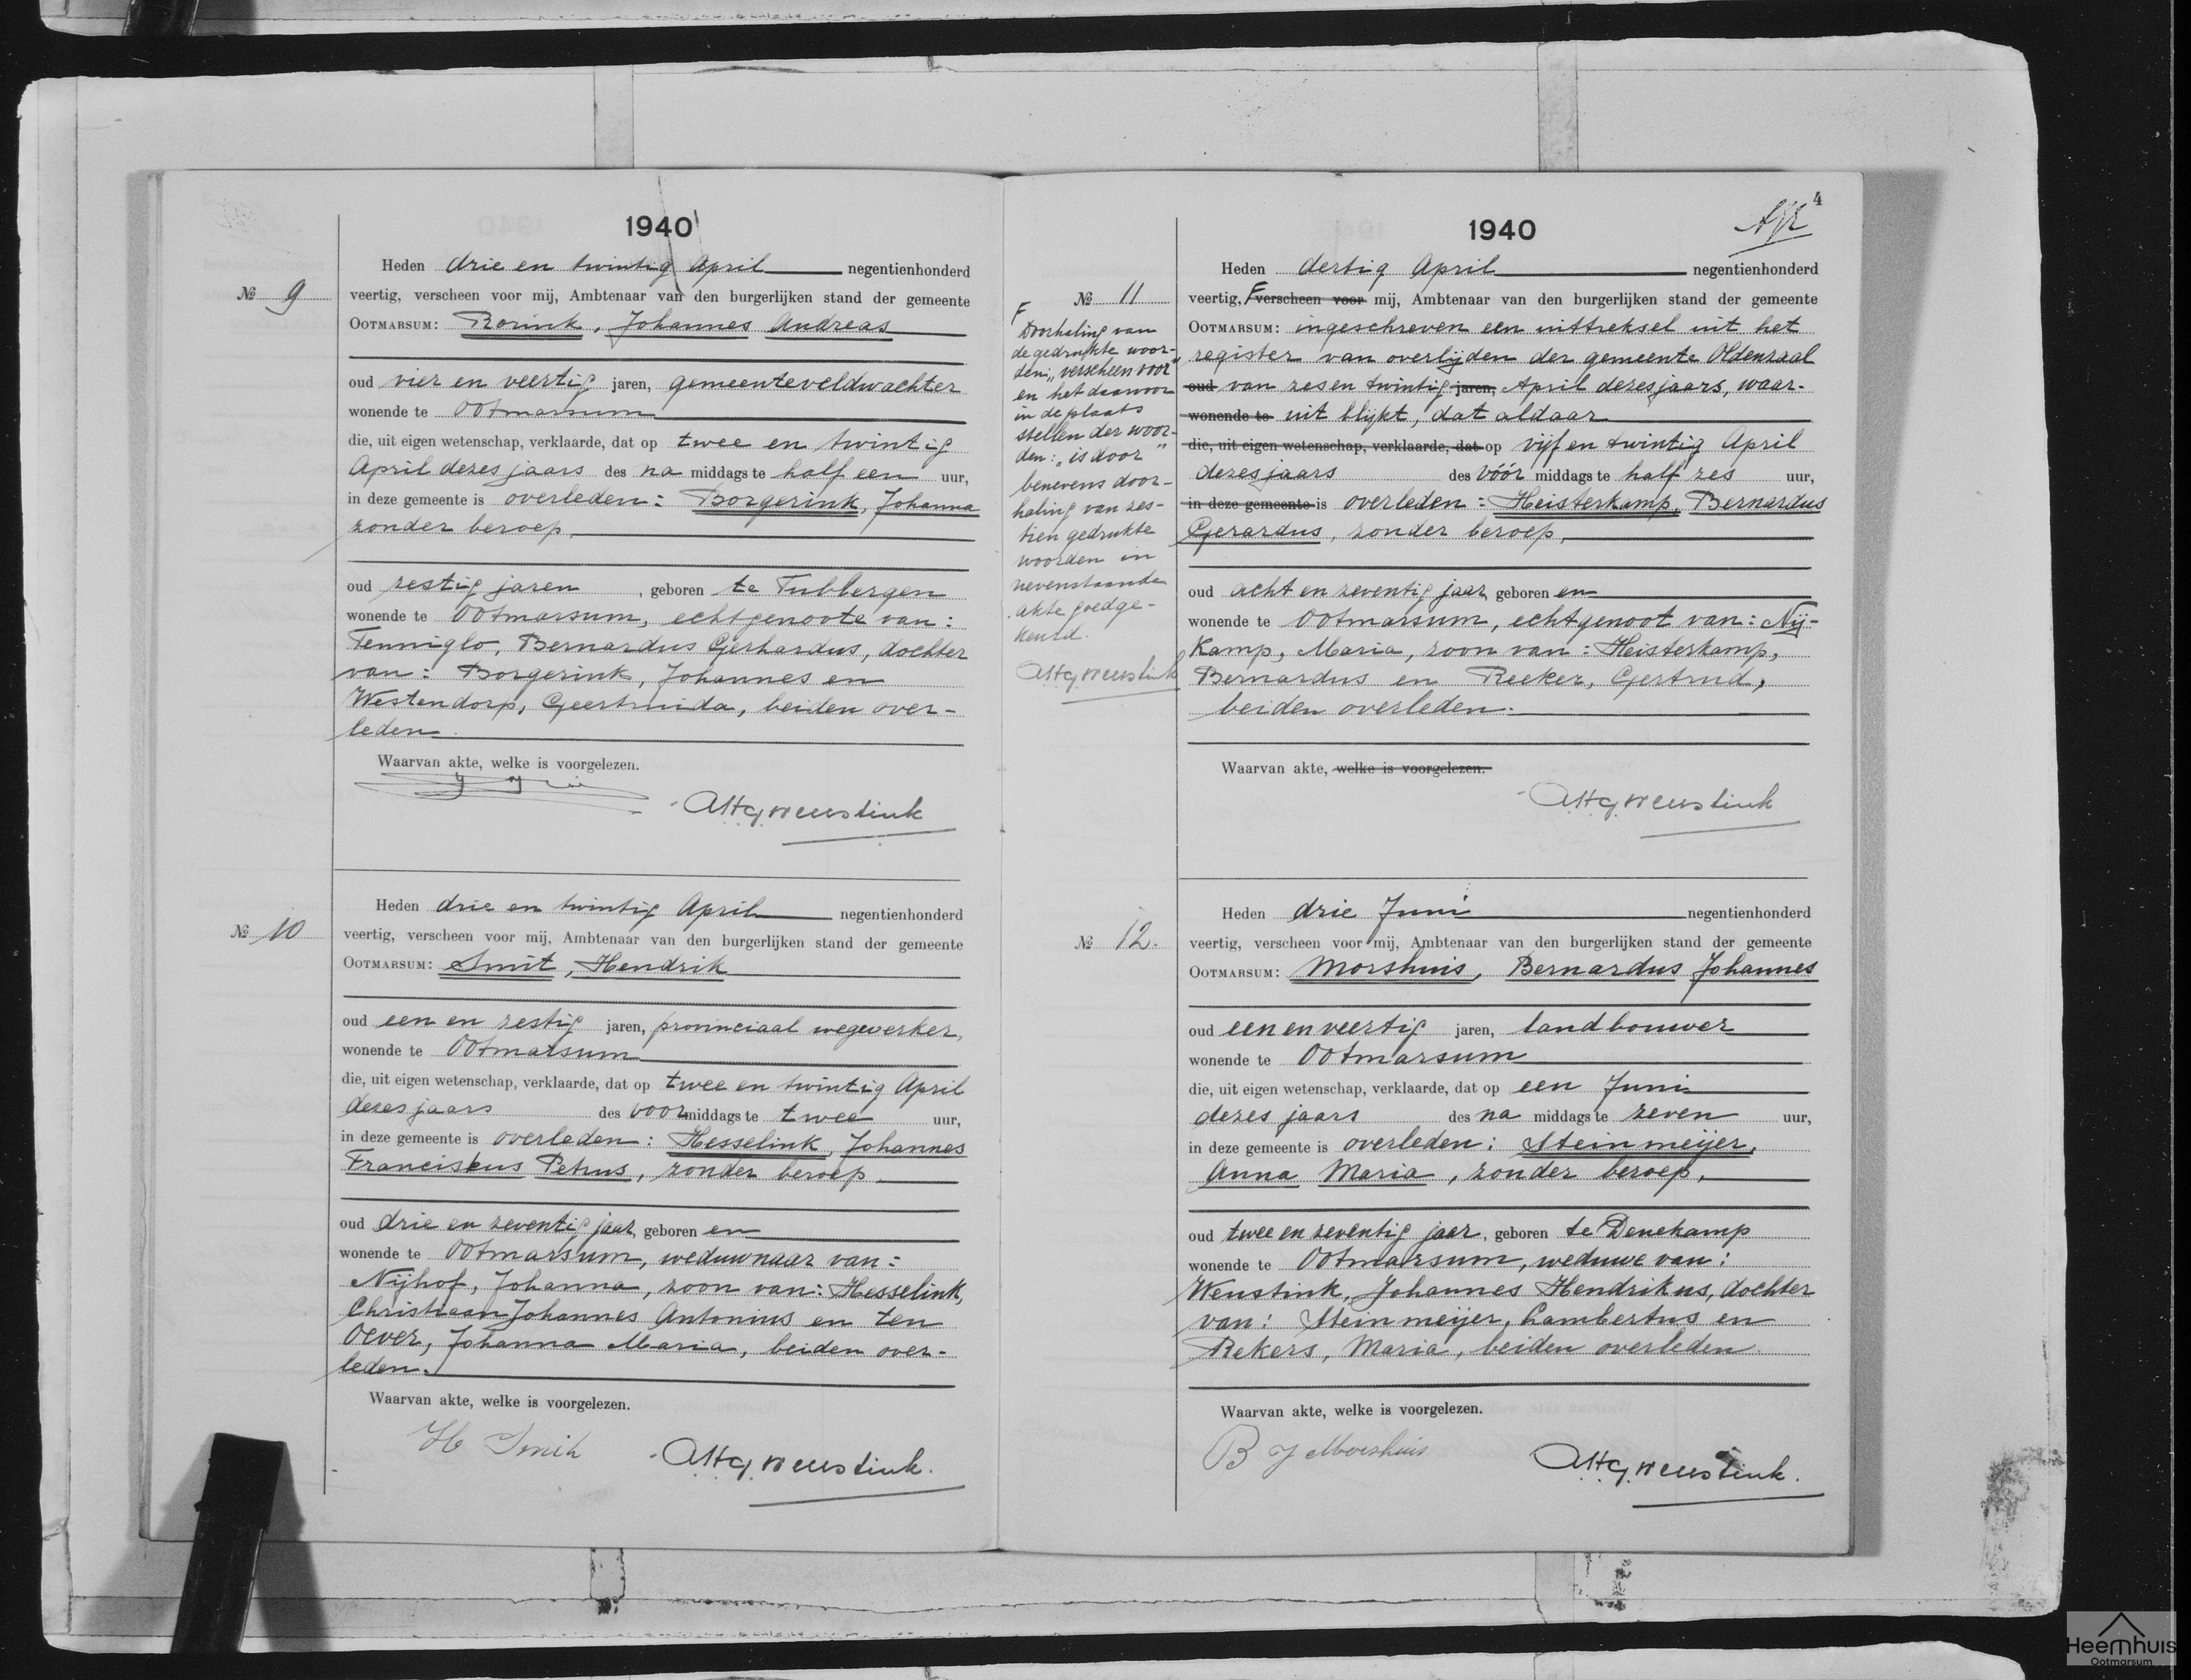 1940
№ 9
Heden drie en twintig April negentienhonderd
veertig, verscheen voor mij, Ambtenaar van den burgerlijken stand der gemeente
OOTMARSUM: Rorink, Johannes Andreas
oud vier en veertig jaren, gemeenteveldwachter
wonende te Ootmarsum
die, uit eigen wetenschap, verklaarde, dat op twee en twintig
April dezes jaars des na middags te half een uur,
in deze gemeente is overleden: Borgerink, Johanna
zonder beroep,
oud zestig jaren, geboren te Tubbergen
wonende te Ootmarsum, echtgenoote van:
Tenniglo, Bernardus Gerhardus, dochter
van: Borgerink, Johannes en
Westendorp, Geertruida, beiden over-
leden.
Waarvan akte, welke is voorgelezen.
AHG Weustink
№ 10
Heden drie en twintig April negentienhonderd
veertig, verscheen voor mij, Ambtenaar van den burgerlijken stand der gemeente
OOTMARSUM: Smit, Hendrik
oud een en zestig jaren, provinciaal wegewerker,
wonende te Ootmarsum
die, uit eigen wetenschap, verklaarde, dat op twee en twintig April
dezes jaars des voor middags te twee uur,
in deze gemeente is overleden: Hesselink, Johannes
Franciskus Petrus, zonder beroep
oud drie en zeventig jaar, geboren en
wonende te Ootmarsum, weduwnaar van:
Nijhof, Johanna, zoon van: Hesselink,
Christiaan Johannes Antonius en ten
Oever, Johanna Maria, beiden over-
leden.
Waarvan akte, welke is voorgelezen.
H Smit AHG Weustink.
4
1940
№ 11
F
Doorhaling van
de gedrukte woor-
den: „verscheen voor"
en het daarvoor
in de plaats
stellen der woor-
den: „is door"
benevens door-
haling van zes-
tien gedrukte
woorden in
nevenstaande
akte goedge-
keurd.
AHG Weustink
Heden dertig April negentienhonderd
veertig, F verscheen voor mij, Ambtenaar van den burgerlijken stand der gemeente
OOTMARSUM: ingeschreven een uittreksel uit het
register van overlijden der gemeente Oldenzaal
oud van zes en twintig jaren, April dezes jaars, waar-
wonende te uit blijkt, dat aldaar
die, uit eigen wetenschap, verklaarde, dat op vijf en twintig April
dezes jaars des vóór middags te half zes uur,
in deze gemeente is overleden: Heisterkamp, Bernardus
Gerardus, zonder beroep,
oud acht en zeventig jaar, geboren en
wonende te Ootmarsum, echtgenoot van: Nij-
kamp, Maria, zoon van: Heisterkamp,
Bernardus en Reeker, Gertrud,
beiden overleden.
Waarvan akte, welke is voorgelezen.
AHG Weustink
№ 12.
Heden drie Juni negentienhonderd
veertig, verscheen voor mij, Ambtenaar van den burgerlijken stand der gemeente
OOTMARSUM: Morshuis, Bernardus Johannes
oud een en veertig jaren, landbouwer
wonende te Ootmarsum
die, uit eigen wetenschap, verklaarde, dat op een Juni
dezes jaars des na middags te zeven uur,
in deze gemeente is overleden: Steinmeijer,
Anna Maria, zonder beroep,
oud twee en zeventig jaar, geboren te Denekamp
wonende te Ootmarsum, weduwe van:
Weustink, Johannes Hendrikus, dochter
van: Steinmeijer, Lambertus en
Rekers, Maria, beiden overleden.
Waarvan akte, welke is voorgelezen.
B J Morshuis AHG Weustink.
Heemhuis
Ootmarsum